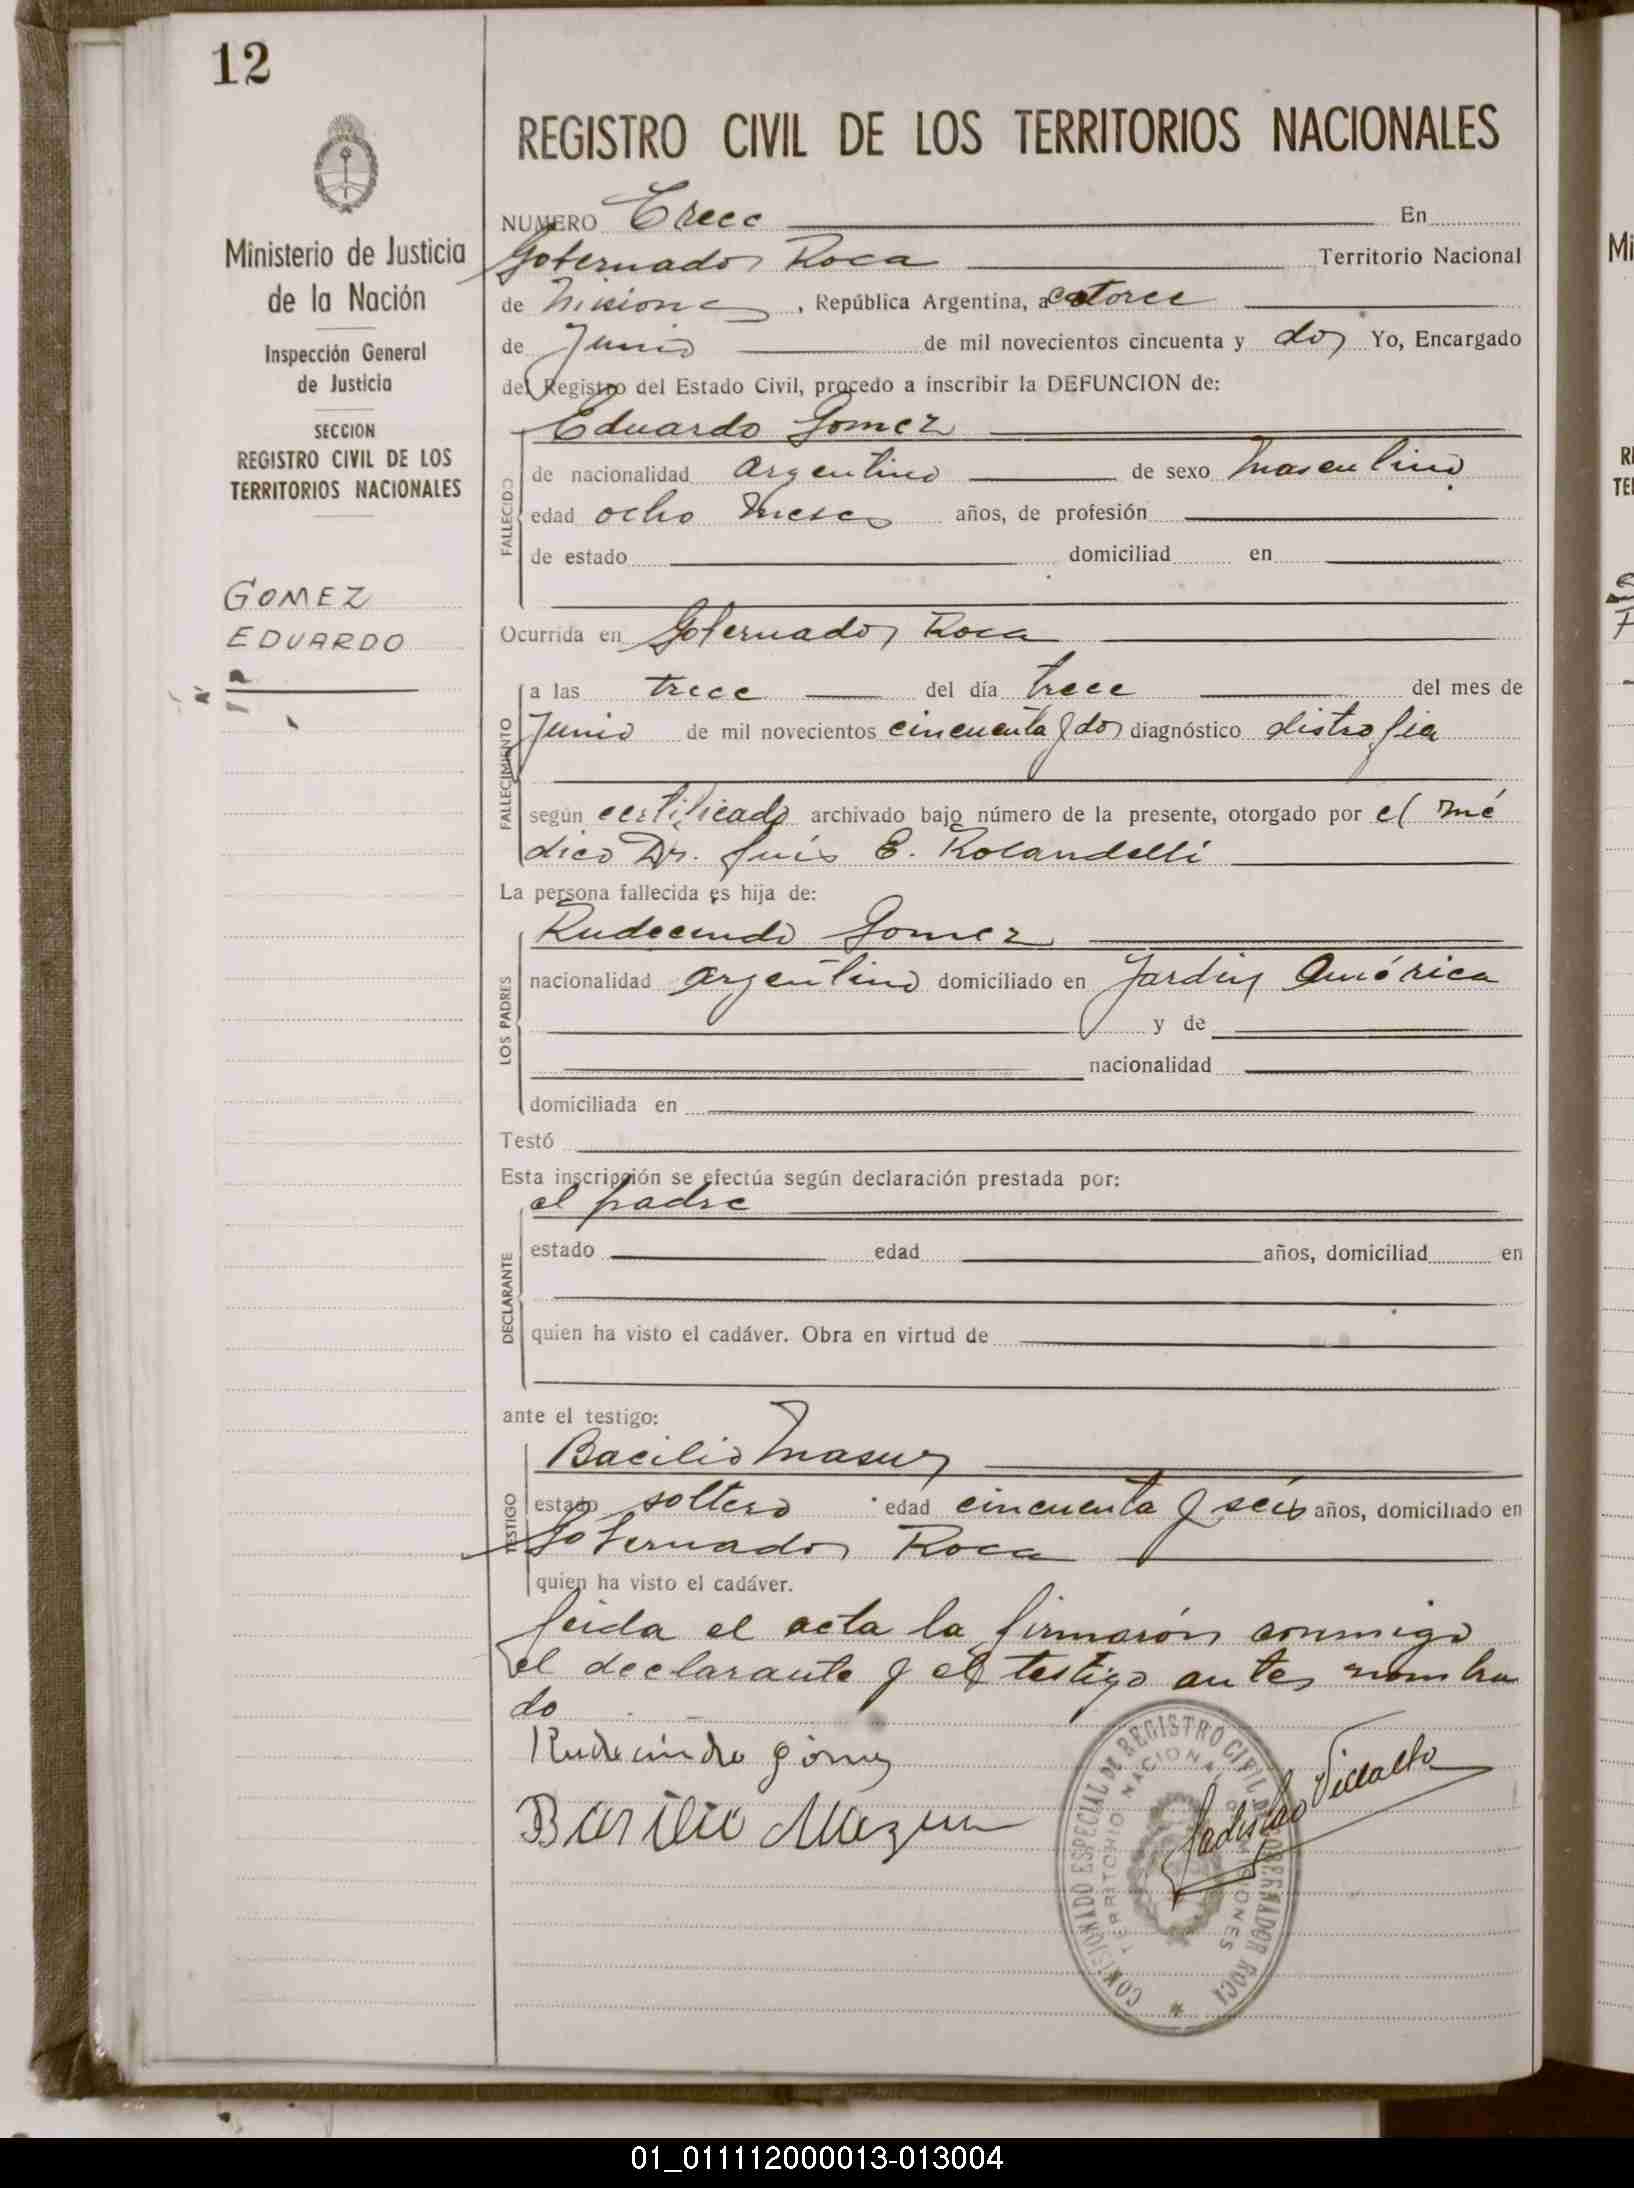 12
Ministerio de Justicia
de la Nación
Inspección General
de Justicia
SECCION
REGISTRO CIVIL DE LOS
TERRITORIOS NACIONALES
GOMEZ
EDUARDO
REGISTRO CIVIL DE LOS TERRITORIOS NACIONALES
NUMERO Trece En
Gobernador Roca Territorio Nacional
de Misiones, República Argentina, a catorce
de Junio de mil novecientos cincuenta y dos Yo, Encargado
del Registro del Estado Civil, procedo a inscribir la DEFUNCION de:
Eduardo Gomez
FALLECIDO
de nacionalidad argentino de sexo masculino
edad ocho meses años, de profesión
de estado domiciliad en
Ocurrida en Gobernador Roca
FALLECIMIENTO
a las trece del día trece del mes de
Junio de mil novecientos cincuenta y dos diagnóstico distrofia
según certificado archivado bajo número de la presente, otorgado por el mé
dico Dr. Luis E. Rolandelli
La persona fallecida es hija de:
LOS PADRES
Rudecindo Gomez
nacionalidad argentino domiciliado en Jardin América
y de
nacionalidad
domiciliada en
Testó
Esta inscripción se efectúa según declaración prestada por:
el padre
DECLARANTE
estado edad años, domiciliad en
quien ha visto el cadáver. Obra en virtud de
ante el testigo:
Bacilio Masur
TESTIGO
estado soltero edad cincuenta y seis años, domiciliado en
Gobernador Roca
quien ha visto el cadáver.
Leida el acta la firmarón conmigo
el declarante y el testigo antes nombra
do
Rudecindo gómez
Basilio Mazur
Ladislao Villalba
COMISIONADO ESPECIAL DE REGISTRO CIVIL DE GOBERNADOR ROCA
TERRITORIO NACIONAL DE MISIONES
Mi
01_011112000013-013004